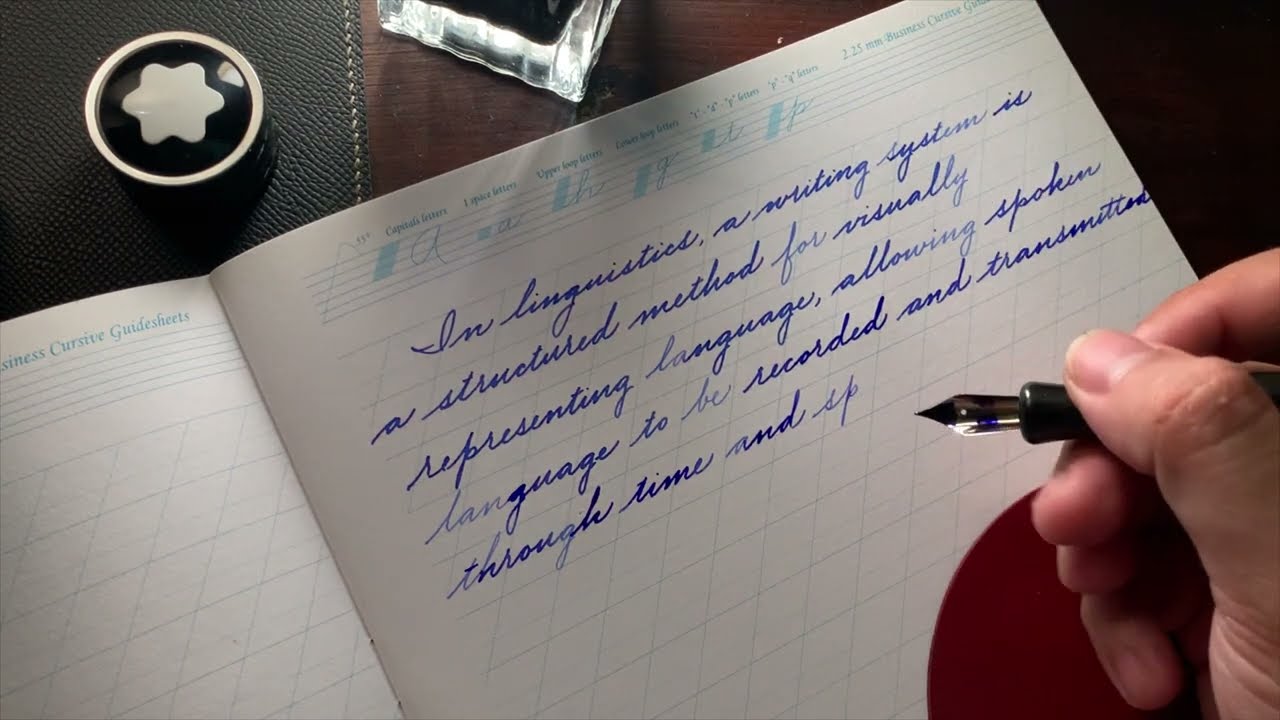 2.25 mm Business Cursive Guid
55° Capitals letters 1 space letters Upper loop letters Lower loop letters "t" - "d" - "p" letters "p" - "q" letters
A a h g t p
siness Cursive Guidesheets
In linguistics, a writing system is
a structured method for visually
representing language, allowing spoken
language to be recorded and transmitted
through time and sp